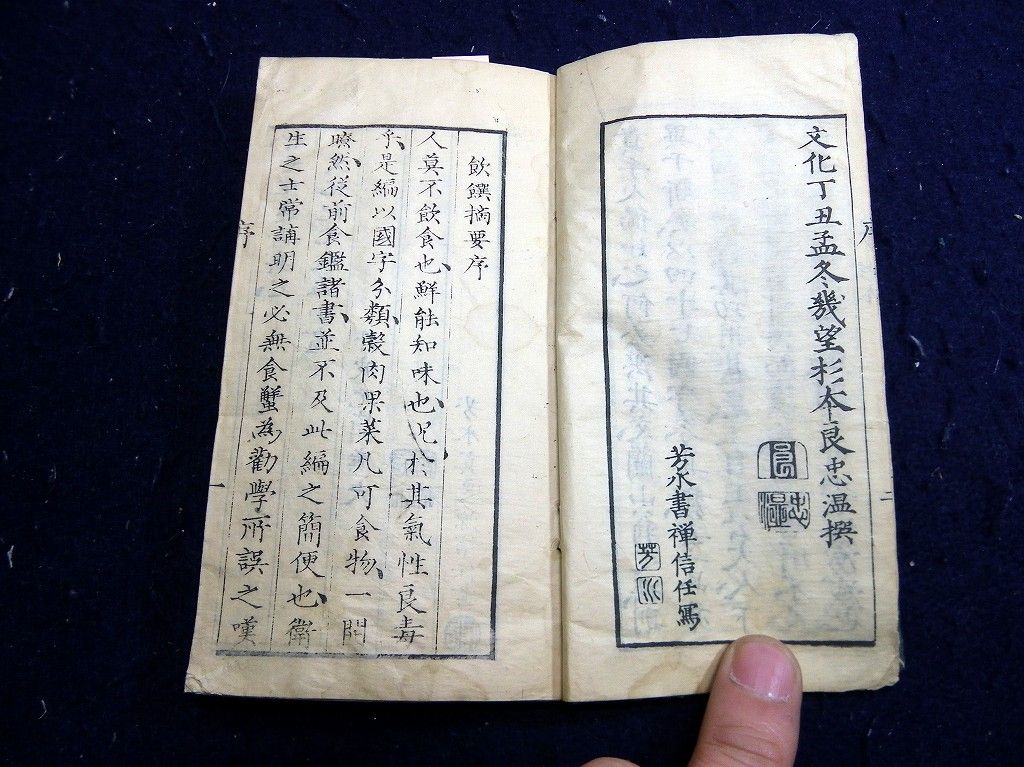 文化丁丑孟冬幾望杉本良忠温撰
芳水書禅信任寫
芳水
序
二
飲饌摘要序
人莫不飲食也鮮能知味也况於其氣性良毒
乎是編以國字分類穀肉果菜凡可食物一閲
瞭然従前食鑑諸書並不及此編之簡便也衛
生之士常誦明之必無食蟹為勸學所誤之嘆
序
一